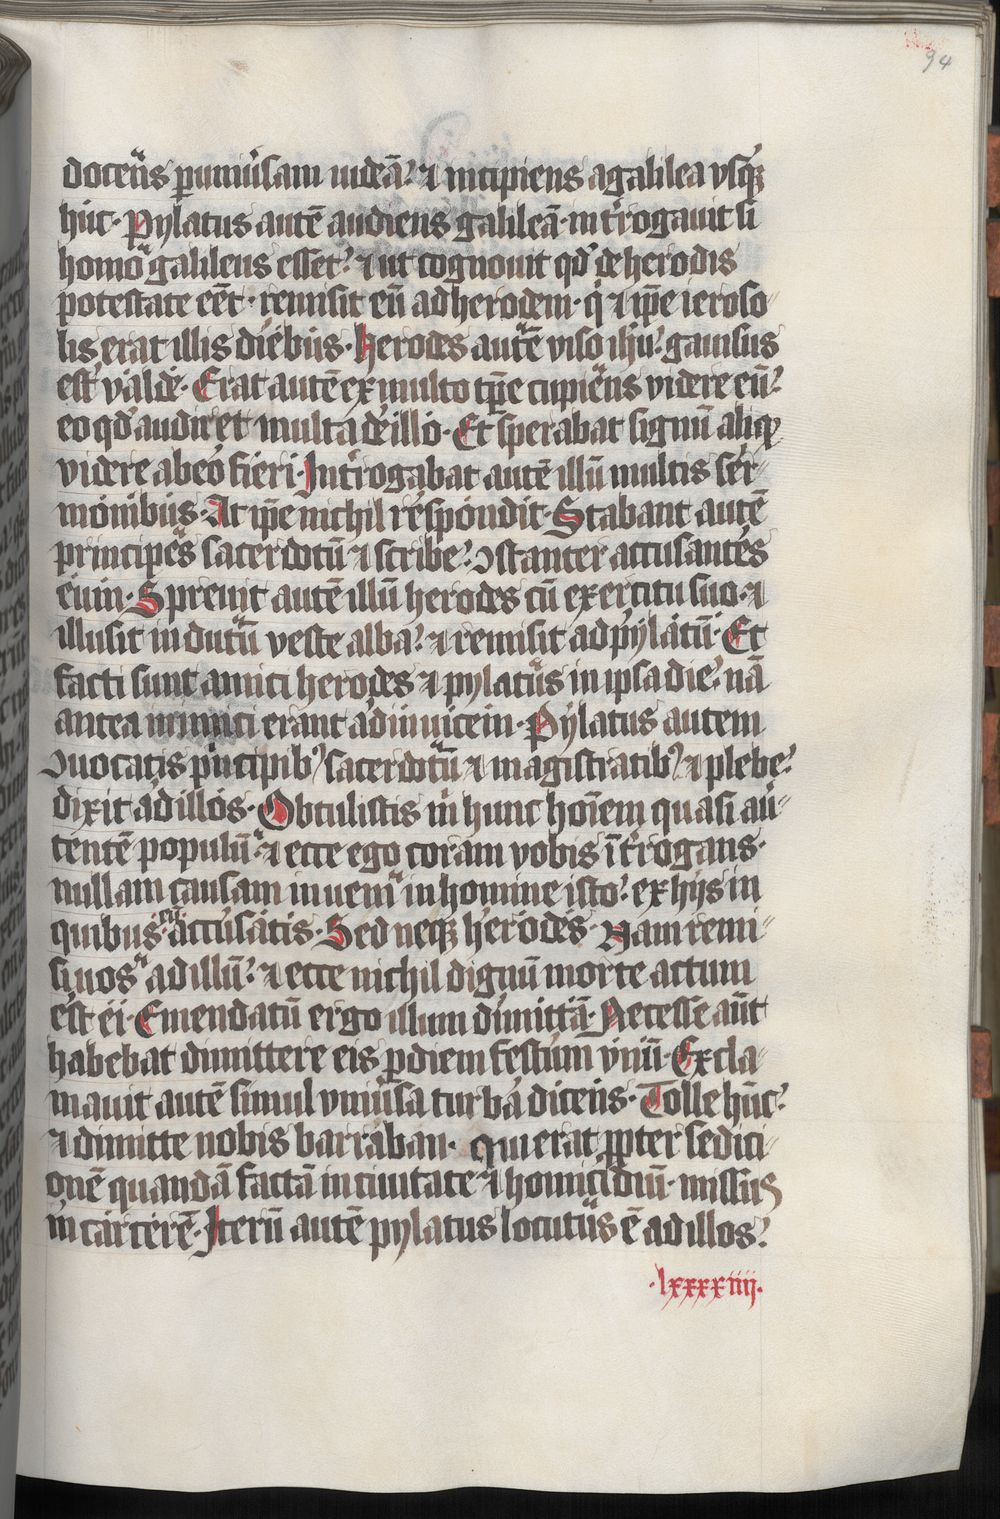 94
docens p unıuˀsam iudeā· ⁊ incipiens a galilea vsqꝫ
huc· Pylatus autē audiens galileā· intˀrogauit si
homo galileus esset· ⁊ ut cognouit qd̓ de herodis
potestate eēt· remisit eū ad herodem· qͥ ⁊ ip̄e ieroso
lis erat illis diebus· Herodes autē viso ihu· gauisus
est valde· Erat autē ex multo tp̄e cupiens videre eū·
eo qd̓ audiret multa de illo· Et sperabat signū aliqͦd
videre ab eo fieri· Intˀrogabat autē illū multis ser-
monibus· At ip̄e nichil respondit· Stabant autē
principes sacerdotū ⁊ scribe· ꝯstanter accusantes
eum· Spreuit autē illū herodes cū exercitu suo· ⁊
illusit indutū veste alba· ⁊ remisit ad pylatū· Et
facti sunt amici herodes ⁊ pylatus in ipsa die· nā
antea inimici erant ad inuicem· Pylatus autem
ꝯuocatis pͥncipibꝰ sacerdotū ⁊ magistratibꝰ ⁊ plebe·
dixit ad illos· Obtulistis mͥ hunc hoīem quasi auˀ-
tentē populū· ⁊ ecce ego coram vobis ītˀrogans·
nullam causam inueni in homine isto· ex hijs in
quibus eū accusatis· Sed neqꝫ herodes· Nam remi-
si uos ad illū· ⁊ ecce nichil dignū morte actum
est ei· Emendatū ergo illum dimittā· Necesse aūt
habebat dimittere eis p diem festum vnū· Excla-
mauit autē simul vniuˀsa turba dicens· Tolle hūc·
⁊ dimitte nobis barraban· Qui erat ꝓpter sedici-
onē quandā factā in ciuitate ⁊ homicidiū· missus
in carcerē· Iterū autē pylatus locutus ē ad illos·
·lxxxxiiij·